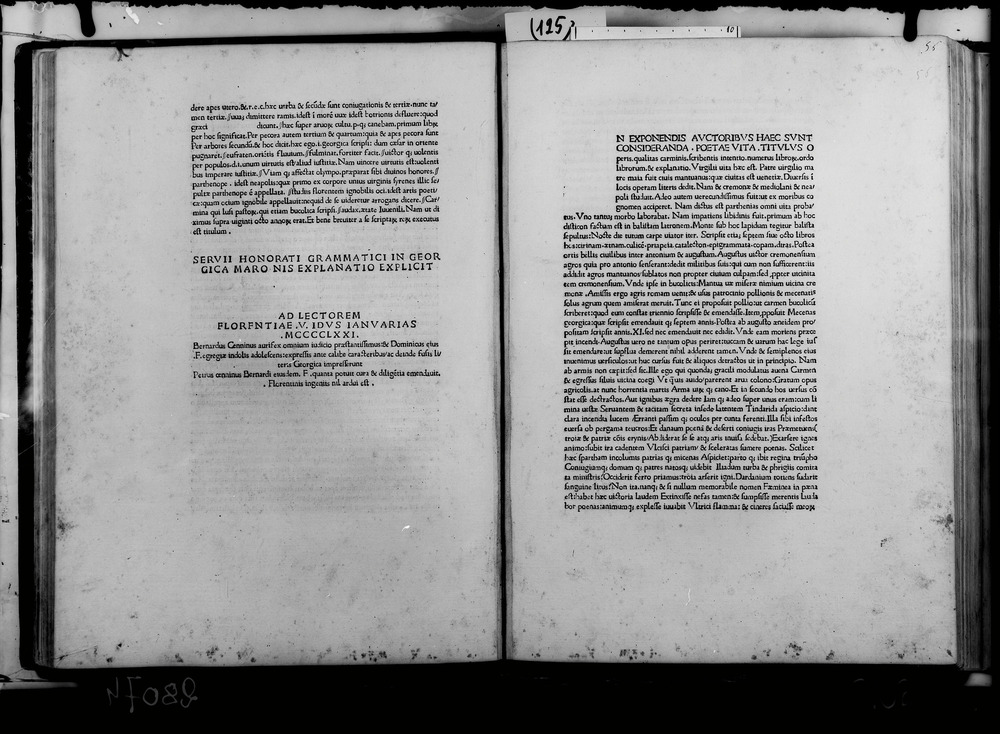 (125)
10
55
55
dere apes utero.&.r.e.c.hæc uerba & secūdæ sunt coniugationis & tertiæ.nunc ta/
men tertiæ.ſuua; dimittere ramis.idest ī morē uuæ idest botrionis defluere:quod
græci dicunt.ſhæc super aruoɽ cultu.p.q; canebam.primum librɽ
per hoc significat.Per pecora autem tertium & quartum:quia & apes pecora sunt
Per arbores secundū.& hoc dicit.hæc ego.i.georgica scripsi: dum cæsar in oriente
pugnaret.ſeufraten.oriētis fluuium.ſfulminat.fortiter facit.ſuictor q; uolentis
per populos.d.i.unum uirtutis est:aliud iustitiæ.Nam uincere uirtutis est:uolenti
bus imperare iustitiæ.ſViam q; affectat olympo.præparat sibi diuinos honores.ſ
parthenope . idest neapolis:quæ primo ex corpore unius uirginis syrenes illic se/
pultæ parthenope ē appellata. ſstudiis florentem ignobilis oci.idest artis poeti/
cæ:quam ocium ignobile appellauit:nequid de se uideretur arrogans dicere.ſCar/
mina qui lusi pastoɽ.qui etiam bucolica scripsi.ſaudax.ætate Iuuenili.Nam ut di
ximus supra uiginti octo annoɽ erat.Et bene breuiter a se scriptaɽ reɽ executus
est titulum .
SERVII HONORATI GRAMMATICI IN GEOR
GICA MARO NIS EXPLANATIO EXPLICIT
AD LECTOREM
FLORENTIAE .V. IDVS IANVARIAS
.MCCCCLXXI.
Bernardus Cenninus aurifex omnium iudicio præstantissimus:& Dominicus eius
.F.egregiæ indolis adolescens:expressis ante calibe caracteribus:ac deinde fusis li/
teris Georgica impresserunt
Petrus cenninus Bernardi eiusdem. F .quanta potuit cura & diligētia emendauit.
. Florentinis ingeniis nil ardui est .
N EXPONENDIS AVCTORIBVS HAEC SVNT
CONSIDERANDA . POETAE VITA .TITVLVS O
peris.qualitas carminis.scribentis intentio.numerus libroɽ.ordo
librorum.& explanatio. Virgilii uita hæc est. Patre uirgilio ma
tre maia fuit ciuis mantuanus:quæ ciuitas est uenetiæ. Diuersis ī
locis operam literis dedit. Nam & cremonæ & mediolani & nea/
poli studuit.Adeo autem uerecundissimus fuit:ut ex moribus co
gnomen acciperet. Nam dictus est parthenias omni uita proba/
tus.Vno tantuɽ morbo laborabat. Nam impatiens libidinis fuit.primum ab hoc
disticon factum est in balistam latronem.Monte sub hoc lapidum tegitur balista
sepultus:Nocte die tutum carpe uiator iter. Scripsit etiā; septem siue octo libros
hos:cirinam.ætnam.culicē.priapeia.catalecton.epigrammata.copam.diras.Postea
ortis bellis ciuilibus inter antonium & augustum.Augustus uictor cremonensium
agros quia pro antonio senserant:dedit militibus suis:qui cum non sufficerent:iis
addidit agros mantuanos:sublatos non propter ciuium culpam:sed ,ppter uicinita
tem cremonensium. Vnde ipse in bucolicis:Mantua uæ miseræ nimium uicina cre
monæ .Amissis ergo agris romam uenit:& usus patrocinio pollionis & mecenatis
solus agrum quem amiserat meruit. Tunc ei proposuit pollio:ut carmen bucolicū
scriberet:quod eum constat triennio scripsisse & emendasse.Item,pposuit Mecenas
georgica:quæ scripsit emendauit q; septem annis.Postea ab augusto æneidem pro/
positam scripsit annis.XI.sed nec emendauit nec edidit. Vnde eam moriens præce
pit incendi.Augustus uero ne tantum opus periret:tuccam & uarum hac lege ius/
sit emendare:ut supflua demerent nihil adderent tamen. Vnde & semiplenos eius
inuenimus uersiculos:ut hic cursus fuit & aliquos detractos ut in principio. Nam
ab armis non cœpit:sed sic.Ille ego qui quondaɽ gracili modulatus auena Carmen
& egressus siluis uicina coegi Vt q̄uis auido/parerent arua colono:Gratum opus
agricolis.at nunc horrentia martis Arma uiɽ q; cano.Et in secundo hos uersus cō
stat esse detractos.Aut ignibus ægra dedere Iam q; adeo super unus eram:cum li
mina uestæ Seruantem & tacitam secreta insede latentem Tindarida aspicio:dant
clara incendia lucem /Erranti passim q; oculos per cunta ferenti.Illa sibi infestos
euersa ob pergama teucros:Et danaum poenā & deserti coniugis iras Præmetuens
troiæ & patriæ cōis erynis:Abdiderat se se atq; aris inuisa sedebat.)Exarsere ignes
animo:subit ira cadentem Vlcisci patriam/ & sceleratas sumere poenas. Scilicet
hæc spartham incolumis patrias q; micenas Aspiciet:parto q; ibit regina triūpho
Coniugiumq; domum q; patres natosq; uidebit Iliadum turba & phrigiis comita
ta ministris:Occiderit ferro priamus:troia arserit igni.Dardanium totiens sudarit
sanguine litus?Non ita.nanq; & si nullum memorabile nomen Fæminea in pœna
est:habet hæc uictoria laudem Extinxisse nefas tamen:& sumpsisse merentis Lauda
bor poenas:animumq; explesse iuuabit Vltrici flammæ: & cineres satiasse meoɽ
28074